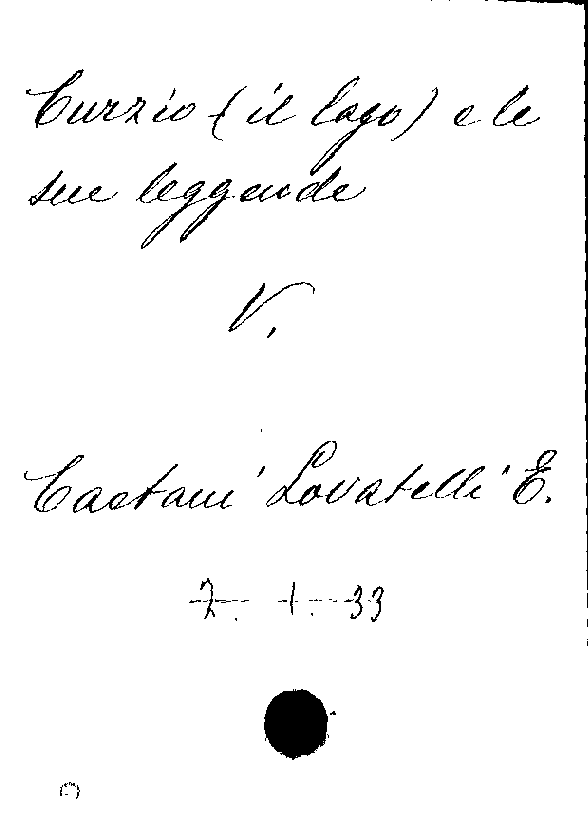 Curzio (il lago) e le
sue leggende
V.
Caetani Lovatelli E.
7. 1. 33